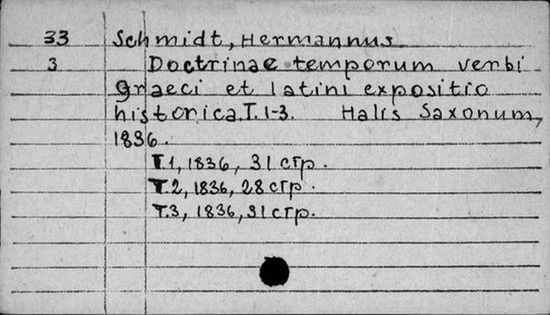 33 Schmidt, Hermannus
3 Doctrinae temporum verbi
Graeci et latini expositio
historica. T. 1-3. Halis Saxonum,
1836.
T.1, 1836, 31 стр.
T.2, 1836, 28 стр.
T.3, 1836, 31 стр.